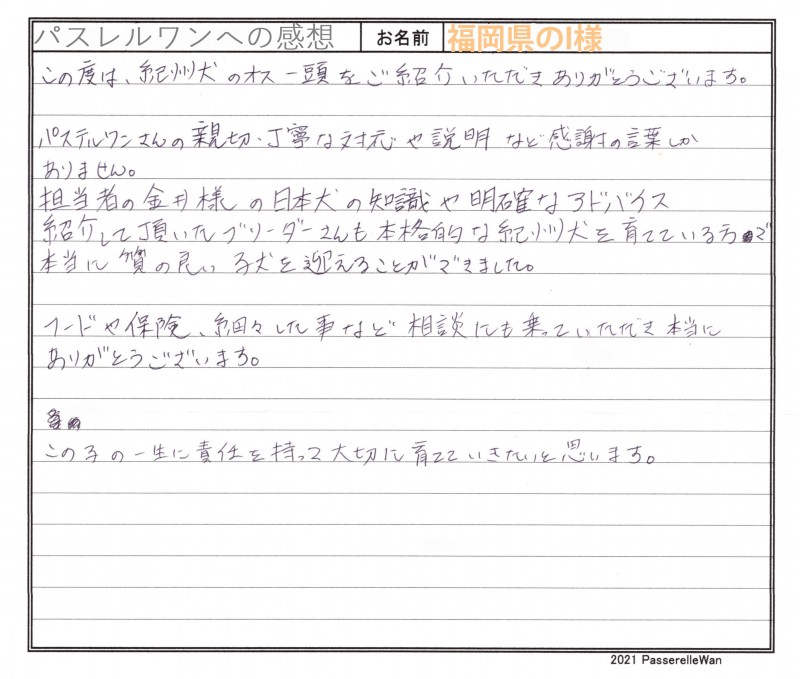 パスレルワンへの感想 お名前 福岡県のI様
この度は、紀州犬のオス一頭をご紹介いただきありがとうございます。
パステルワンさんの親切・丁寧な対応や説明など感謝の言葉しか
ありません。
担当者の金井様の日本犬の知識や明確なアドバイス
紹介して頂いたブリーダーさんも本格的な紀州犬を育てている方で
本当に質の良い子犬を迎えることができました。
フードや保険、細々した事など相談にも乗っていただき本当に
ありがとうございます。
この子の一生に責任を持って大切に育てていきたいと思います。
2021 PasserelleWan